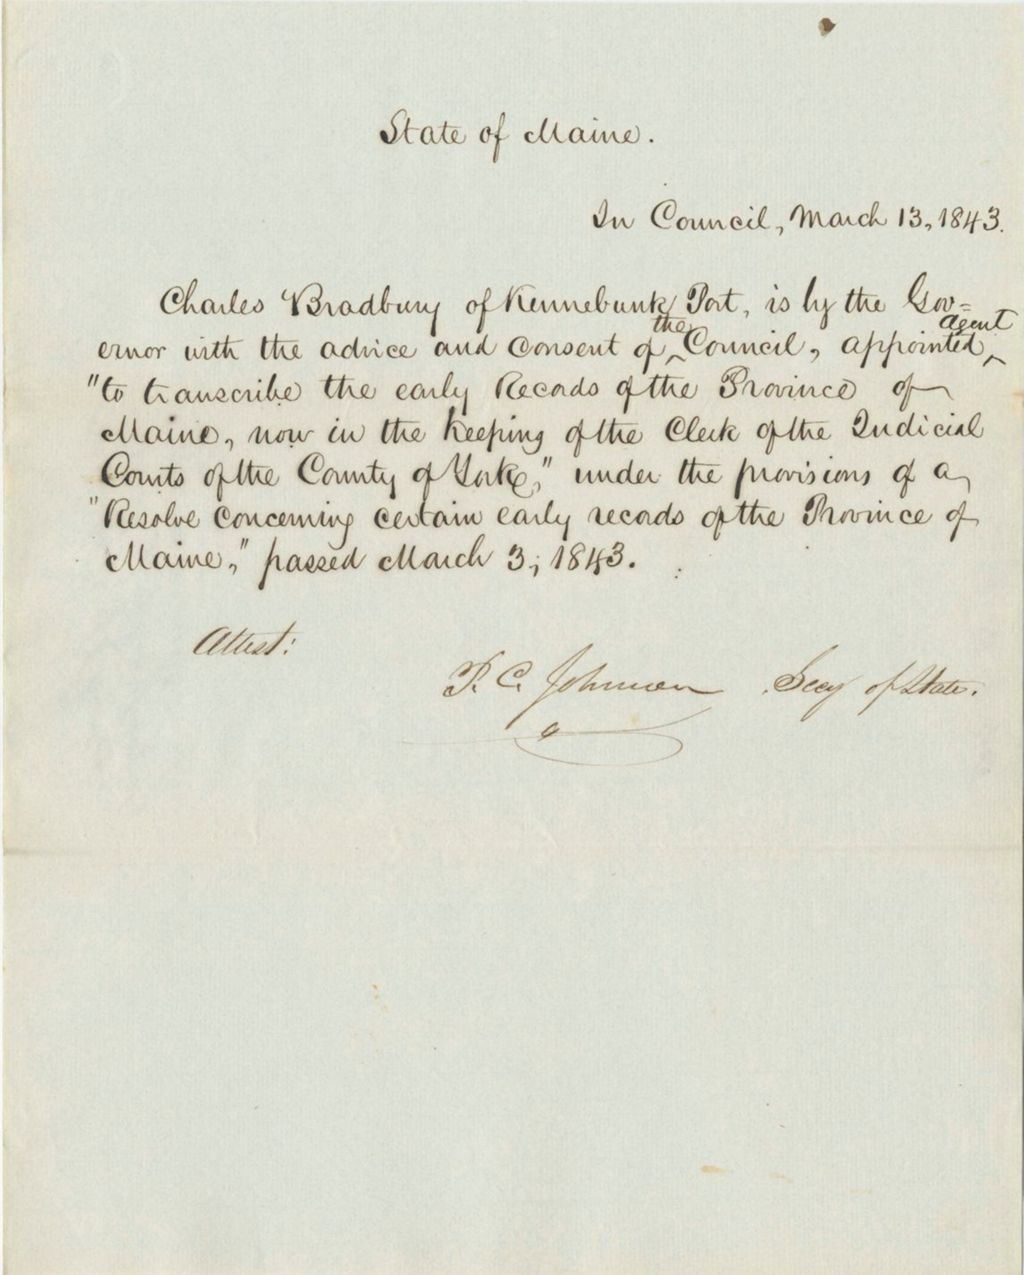 State of Maine.
In Council, March 13, 1843.
Charles Bradbury of Kennebunk Port, is by the Gov=
ernor with the advice and consent of the Council, appointed agent
"to transcribe the early Records of the Province of
Maine, now in the keeping of the Clerk of the Judicial
Courts of the County of York," under the provisions of a
"Resolve concerning certain early records of the Province of
Maine," passed March 3, 1843.
Attest:
P. C. Johnson Secy of State.